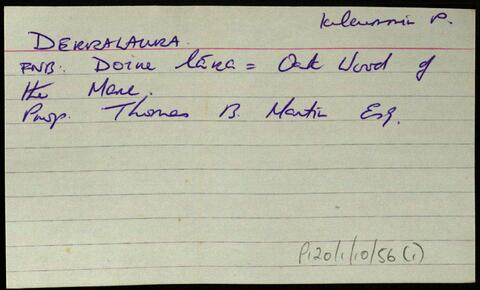 Kilcummin P.
DERRALAURA.
FNB: Doire lára = Oak Wood of
the Mare.
Prop. Thomas B. Martin Esq.
P120/1/10/56 (1)